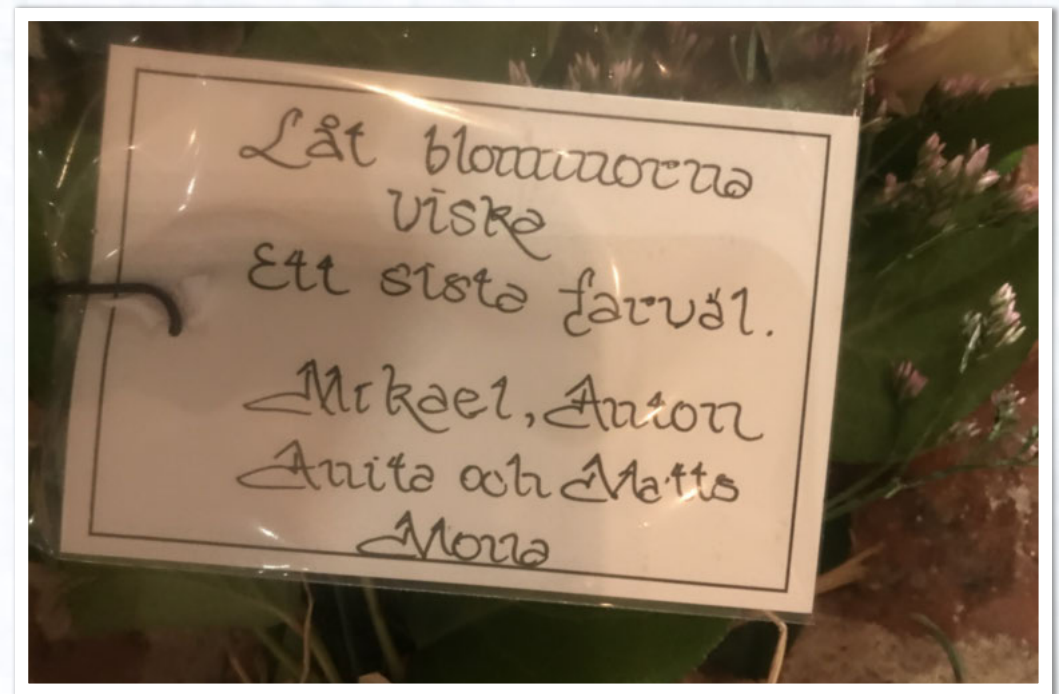 Låt blommorna
viska
Ett sista farväl.
Mikael, Anton
Anita och Matts
Mona